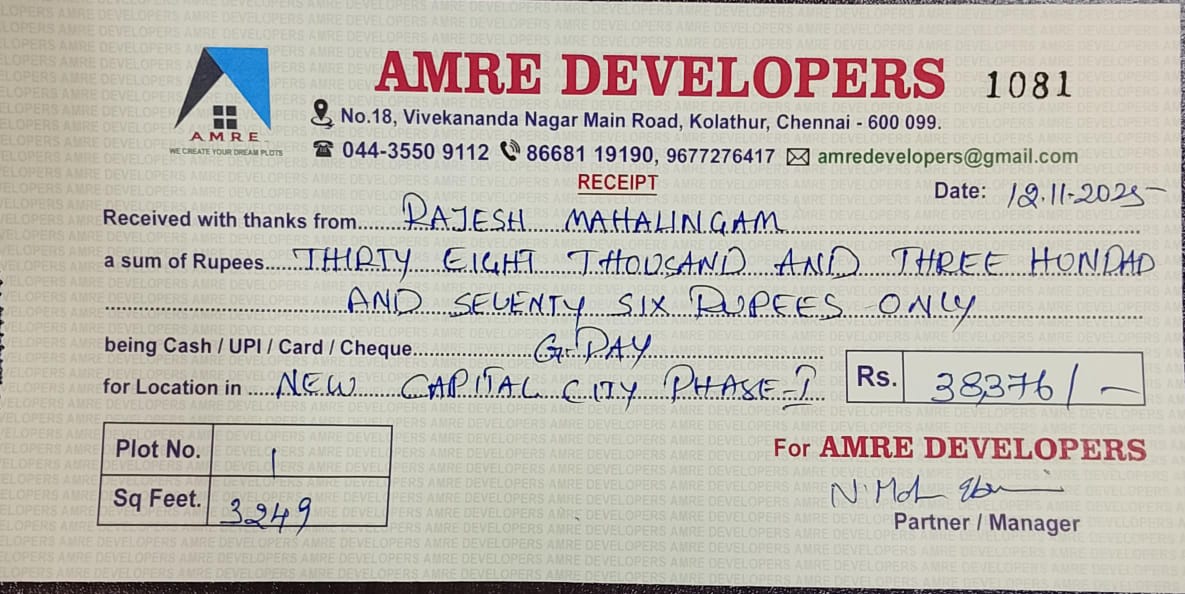 AMRE DEVELOPERS 1081
AMRE
WE CREATE YOUR DREAM PLOTS
No.18, Vivekananda Nagar Main Road, Kolathur, Chennai - 600 099.
044-3550 9112 86681 19190, 9677276417 amredevelopers@gmail.com
RECEIPT
Date: 12.11-2025
Received with thanks from RAJESH MAHALINGAM
a sum of Rupees THIRTY EIGHT THOUSAND AND THREE HONDAD
AND SEVENTY SIX RUPEES ONLY
being Cash / UPI / Card / Cheque G-PAY
for Location in NEW CAPITAL CITY PHASE-I
Rs. 38,376/-
Plot No. 1
Sq Feet. 3249
For AMRE DEVELOPERS
Partner / Manager